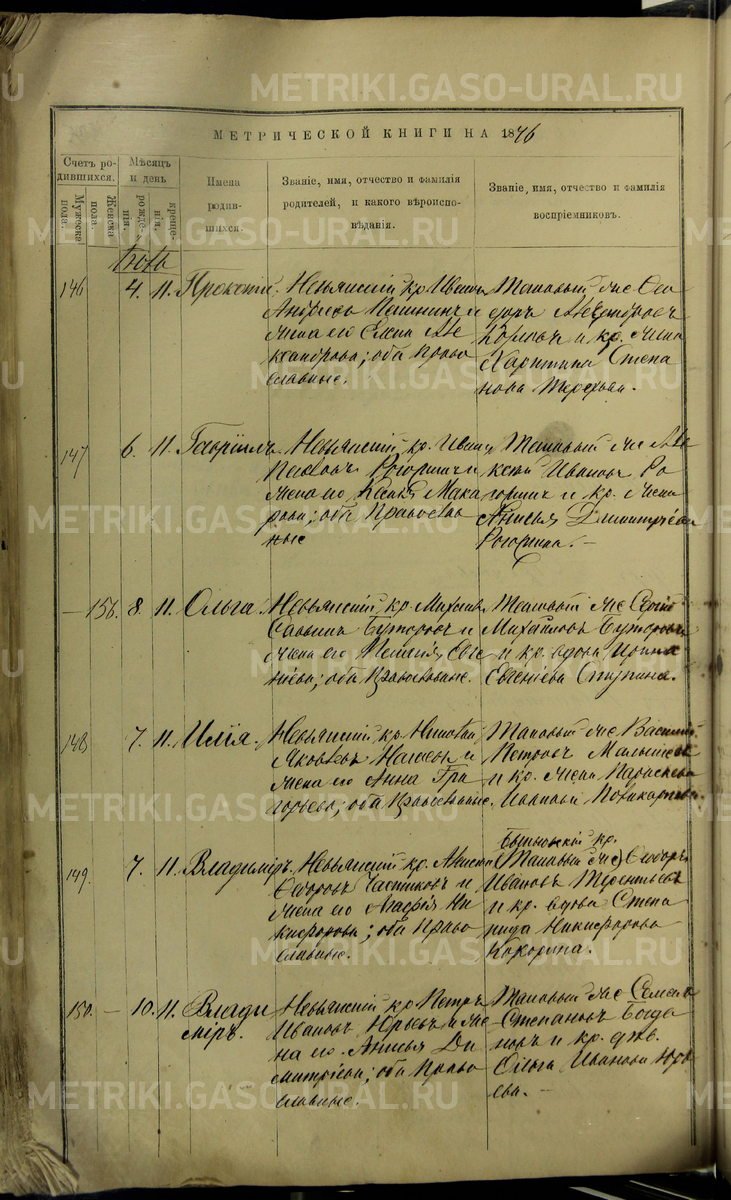 METRIKI.GASO-URAL.RU
МЕТРИЧЕСКОЙ КНИГИ НА 1876
Счетъ ро-
дившихся.
Мужеска
пола.
Женска
пола.
Мѣсяцъ
и день
рожде-
нія.
креще-
нія.
Имена
родив-
шихся.
Званіе, имя, отчество и фамилія
родителей, и какого вѣроиспо-
вѣданія.
Званіе, имя, отчество и фамилія
воспріемниковъ.
146 4. 11. Прокопій. Невьянскій кр. Иванъ
Андреевъ и
жена его Елена Але
ксандрова; оба Право
славные.
Таковый же Ѳео
доръ
и кр. жена
Харитина Степа
нова
147 6. 11. Гавріилъ. Невьянскій кр. Иванъ
Павловъ и
жена его Мака
рова; оба Православ
ные
Таковый же Але
ксѣй Ивановъ Ро
и кр. жена
Анисья Димитріева
—156. 8. 11. Ольга. Невьянскій кр. Михаилъ
Саввинъ Буторовъ и
жена его Пелагія Евге
ніева; оба Православные.
Таковый же Сергій
Михайловъ Буторовъ
и кр. вдова Ирина
Евгеніева
148 7. 11. Илія. Невьянскій кр. Николай
Яковлевъ и
жена его Анна Гри
горьева; оба Православные.
Таковый же Василій
Петровъ Малышевъ
и кр. жена Параскева
Иванова Поликарпова.
149. 7. 11. Владиміръ. Невьянскій кр.
Ѳедоровъ и
жена его Агафія Ни
кифорова; оба Право
славные.
кр.
(Таковый же) Ѳедоръ
Ивановъ Терентьевъ
и кр. вдова Степа
нида Никифорова
Кокорина.
150. — 10. 11. Влади
міръ. Невьянскій кр. Петръ
Ивановъ Юрьевъ и же
на его Анисья Ди
митріева; оба Право
славные.
Таковый же Семенъ
Степановъ Богда
новъ и кр. дѣв.
Ольга Иванова Юрь
ева.—